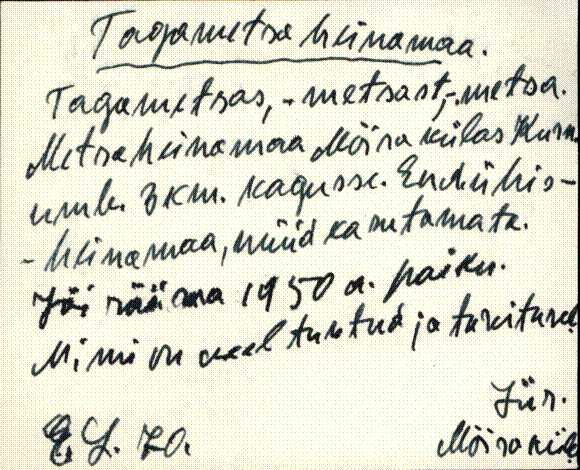 Tagametsa heinamaa.
Tagametsas, -metsast, -metsa.
Metsaheinamaa Mõisakülas Kurn.
umb. 3 km. kagusse. End. ühis-
-heinamaa, nüüd kasutamata.
Jäi rääma 1950 a. paiku.
Nimi on veel tuntud ja
Jür.
E. L. 70. Mõisakül